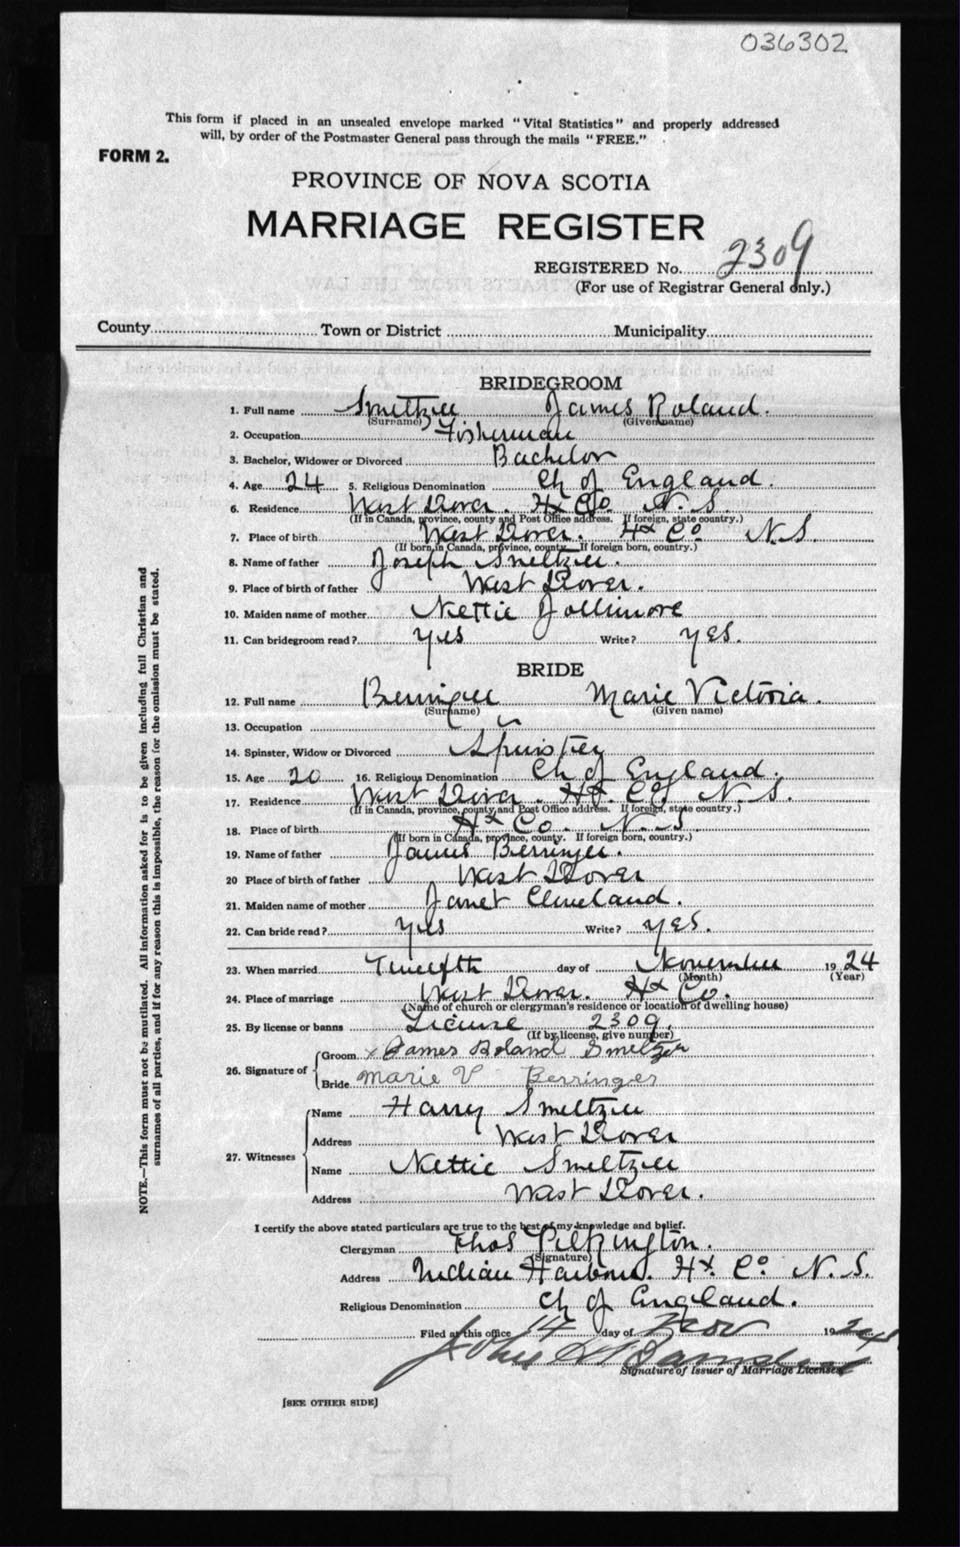 036302
This form if placed in an unsealed envelope marked "Vital Statistics" and properly addressed
will, by order of the Postmaster General pass through the mails "FREE."
FORM 2.
PROVINCE OF NOVA SCOTIA
MARRIAGE REGISTER
REGISTERED No. 2309
(For use of Registrar General only.)
County Town or District Municipality
BRIDEGROOM
1. Full name Smeltzer James Roland.
(Surname) (Given name)
2. Occupation Fisherman
3. Bachelor, Widower or Divorced Bachelor
4. Age 24 5. Religious Denomination Ch of England.
6. Residence West Dover. Hx Co N.S.
(If in Canada, province, county and Post Office address. If foreign, state country.)
7. Place of birth West Dover. Hx Co N.S.
(If born in Canada, province, county. If foreign born, country.)
8. Name of father Joseph Smeltzer.
9. Place of birth of father West Dover.
10. Maiden name of mother Nettie Jollimore
11. Can bridegroom read? yes Write? yes.
BRIDE
12. Full name Berringer Marie Victoria.
(Surname) (Given name)
13. Occupation
14. Spinster, Widow or Divorced Spinster
15. Age 20 16. Religious Denomination Ch of England.
17. Residence West Dover. Hx. Co N.S.
(If in Canada, province, county and Post Office address. If foreign, state country.)
18. Place of birth Hx Co. N.S.
(If born in Canada, province, county. If foreign born, country.)
19. Name of father James Berringer.
20 Place of birth of father West Dover
21. Maiden name of mother Janet Cleveland.
22. Can bride read? yes Write? yes.
23. When married Twelfth day of November 1924
(Month) (Year)
24. Place of marriage West Dover. Hx Co.
(Name of church or clergyman's residence or location of dwelling house)
25. By license or banns License 2309.
(If by license, give number)
26. Signature of Groom x James Roland Smeltzer
Bride Marie V Berringer
27. Witnesses Name Harry Smeltzer
Address West Dover
Name Nettie Smeltzer
Address West Dover.
I certify the above stated particulars are true to the best of my knowledge and belief.
Clergyman Thos Pilkington.
(Signature)
Address Indian Harbour. Hx. Co N.S.
Religious Denomination Ch of England.
Filed at this office 14 day of Nov 1924
John
Signature of Issuer of Marriage Licenses
[SEE OTHER SIDE]
NOTE.—This form must not be mutilated. All information asked for is to be given including full Christian and
surnames of all parties, and if for any reason this is impossible, the reason for the omission must be stated.